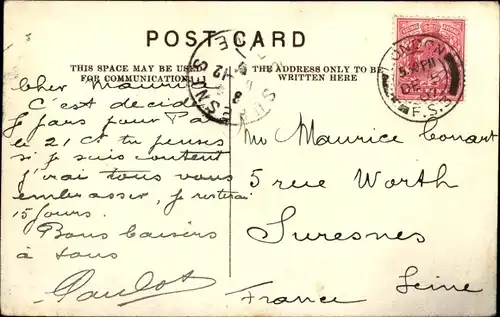 POST CARD
THIS SPACE MAY BE USED
FOR COMMUNICATION
THE ADDRESS ONLY TO BE
WRITTEN HERE
LONDON
F.S.
SURESNES
Cher Maurice
C'est décidé
Je pars pour Pa
le 21 Ct tu penses
si je suis content
J'irai tous vous
embrasser, je resterai
15 jours.
Bons baisers
à tous
Mr Maurice
5 rue Worth
Suresnes
Seine
France